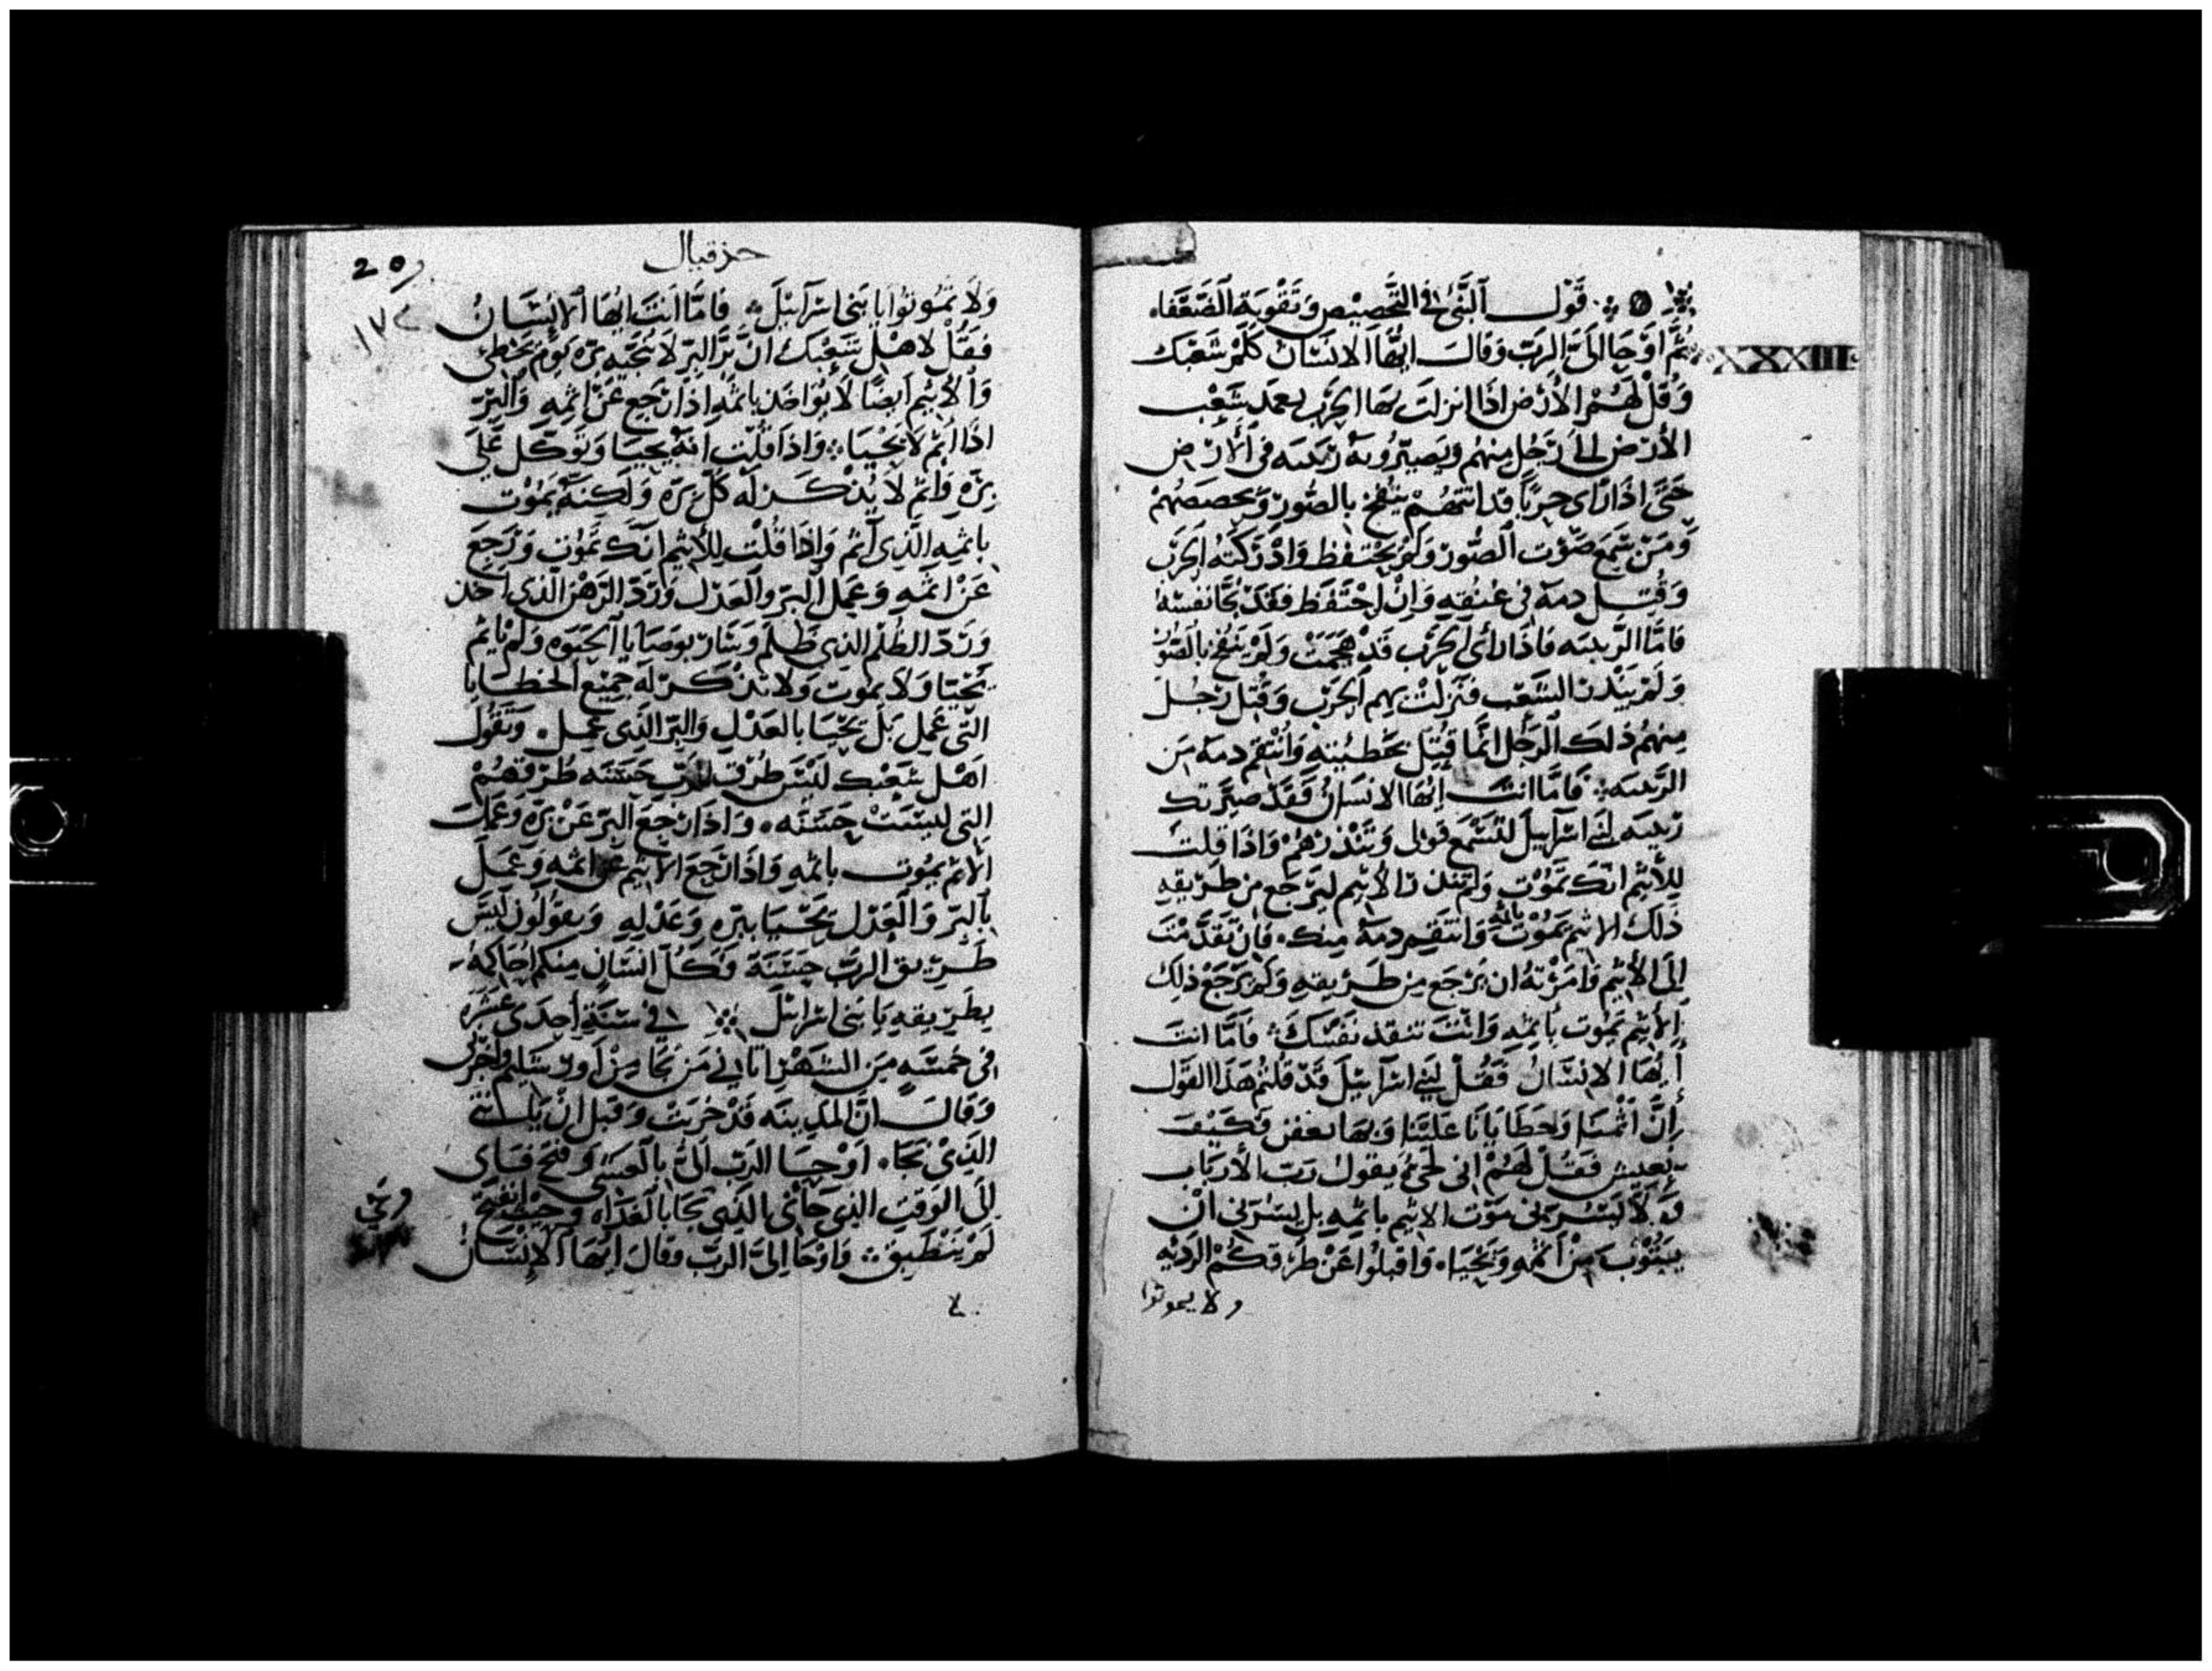 قَول النَّبي في التَّحصيص وَتَقْوية الضَّعَفاء
ثُمَّ اَوْحَا اِلَىَّ الرَبّ وَقالَ ايُّهَا الانسَان كَلّمْ شَعْبك
XXXIII
وَقُلْ لَهُمْ الاَرْض اذَا انزلت بهَا الحَرْب يعمد شَعْب
الأرض الى رَجُل مِنهُم وَيصَيّرُونَهُ ربيه فى الأرْض
حَتَّى اذَا رَاى حربًا قد اتتهُمْ ينفخ بالصُّور وَيحصصهُمْ
وَمَنْ سَمعَ صَوْت الصُّور وَلَمْ يَحْتَفظ وَادْرَكتهُ الحَرب
وَقُتل دمهُ في عُنقِهِ وَاِنْ احْتَفَظ فَقَدْ نجَّا نفسهُ
فامَّا الرَّبيه فَاذَا رَاى الحَرْب قَدْ هَجَمَتْ وَلَمْ يَنفخ بالصُّور
وَلَمْ يَنْذر الشَعْب فنَزلتْ بهم الحَرْب وَقُتل رَجُل
مِنهُمْ ذلك الرَجُل انَّما قُتِلَ بخَطيئتِهِ وَانْتَقم دمهُ مَن
الرَبيه فامَّا انتَ ايُّهَا الانسَانُ فقَدْ صيَّرتك
ربيه لبَنى اسْرَاييل لتَسْمع قولى وَتنْذرهُمْ وَاذَا قلت
للأثيم انّك تَمُوْت وَلَم تنذر الأثيم ليَرْجع من طَريقه
ذلك الاثيم يَمُوْت باثمهِ وَانتَقم دمهُ منك فان تقَدَّمْتَ
الى الأثيم وَامَرْتهُ ان يَرْجَع مِن طَريقهِ وَلَم يرجَعْ ذلك
الأثيم يَمُوت بأثمهِ وَانْتَ تنقد نَفسَكَ فامَّا انتَ
أيُّها الانسَانُ فَقُلْ لبَنى اسْرَاييلَ قَدْ قلتُمْ هَذا القَول
اِنَّ أثمنَا وَخَطَايَانا عَلَيْنا وَبها نعفن فَكَيْفَ
نعيش فَقُلْ لَهُمْ انى لحَىٌّ يقول رَبّ الأرباب
وَلاَ يَسُرّنى مَوْت الاثيم باثمهِ بل يسُرّنى انْ
يَتُوْب مِنْ اثمه وَيَحْيَاء وَاقبلوُا عَنْ طرُقكمْ الرَديه
ولا يموتوا
حزقيال
20
وَلاَ تَمُوتوُا يا بَنى اسْرَاييلَ فامَّا انتَ ايُّهَا الانْسَانُ
فَقُلْ لاهْل شَعْبك انَّ برَّ البرّ لا يُنَجّيهِ برّه يَوْم يخطى
وَالأثيم اَيضًا لاَ يُوَاخَذ باثمهِ اذَا رَجع عَنْ اثمهِ وَالبرّ
اذَا اثم لاَ يَحْيَا وَاذَا قُلْت انهُ يَحيَا وَتَوكّل عَلَى
برّهِ وَاثم لاَ يُذكَر له كُلّ برّه وَلَكِنهُ يَمُوْت
باثمهِ الّذِى اَثم وَاِذَا قُلْت للأثيم انّكَ تَمُوْت وَرَجعَ
عَنْ اثمَهِ وَعَمل البرّ وَالعَدْل وَرَدّ الرَهْن الّذى اخذ
وَرَدّ الظُلْم الذِى ظلم وَسَار بوَصَايا الحَيَوه وَلَمْ ياثم
يَحْيَا وَلاَ يَمُوت وَلاَ تذكر لَهُ جَميْع الخطايا
التّى عَمل بَلْ يَحْيَا بالعَدْل وَالبرّ الّذِى عَمل وَتَقُول
اَهْل شَعْبك ليْسَ طُرْق الرَبّ حَسَنه طُرْقهُمْ
التى ليسَتْ حَسَنه وَاذَا رجعَ البرّ عَنْ برّه وَعَمل
الاثم يَمُوت باثمهِ وَاذَا رَجعَ الاثيم عَن اثمهِ وَعَمَل
بالبرّ وَالعَدْل يَحْيَا ببّره وَعَدْلهِ وَيَقولونَ ليسَ
طَريق الرَبّ حَسَنة وَكُلّ انسَان منكم احَاكِمهُ
بطَريقه يَا بَنى اسرايل في سَنَةِ احِدَى عَشره
فى خمسَهٍ مِن الشَهْر اتَاني مَن نجَا مِنْ اورشَليم
وَقالَ انّ المدينه قَدْ خُربَت وَقبل انْ ياتيني
الّذِىْ نجَاء اوْحَا الرَب اليّ بالعشى وَفتح فَاى
الى الوَقت الذِى جَانى الّذى نجَا بالغَداه وَ
لَمْ يَنْطبق وَاوْحَا اِلىَّ الرَبّ وَقالَ ايُّهَا الاِنسَانُ